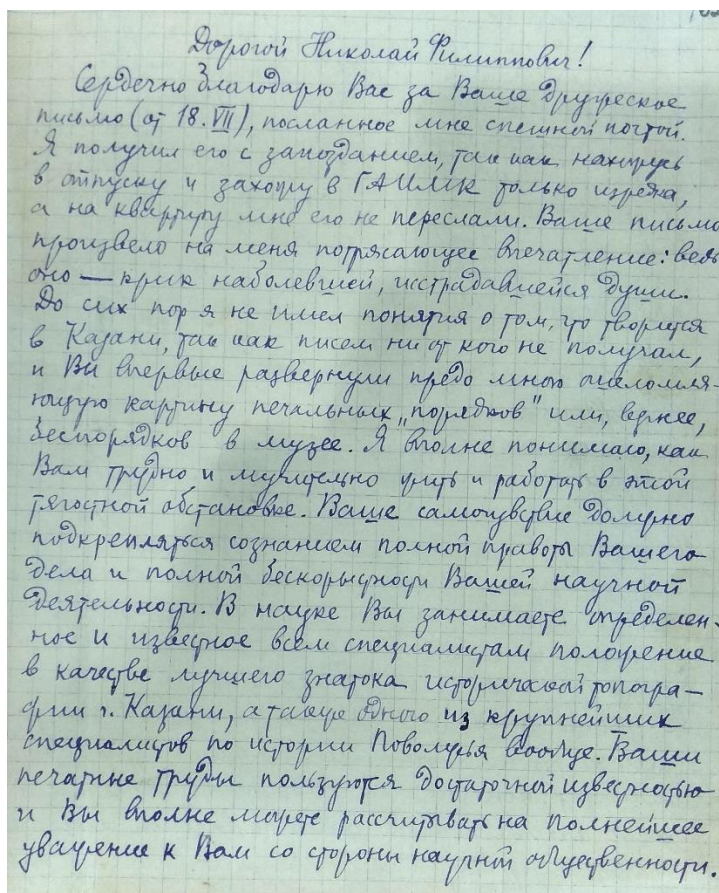 Дорогой Николай Филиппович!
Сердечно благодарю Вас за Ваше дружеское
письмо (от 18.VII), посланное мне спешной почтой.
Я получил его с запозданием, так как нахожусь
в отпуску и захожу в ГАИМК только изредка,
а на квартиру мне его не переслали. Ваше письмо
произвело на меня потрясающее впечатление: ведь
оно — крик наболевшей, исстрадавшейся души.
До сих пор я не имел понятия о том, что творится
в Казани, так как писем ни от кого не получал,
и Вы впервые развернули предо мною ошеломля-
ющую картину печальных „порядков" или, вернее,
беспорядков в музее. Я вполне понимаю, как
Вам трудно и мучительно жить и работать в этой
тягостной обстановке. Ваше самочувствие должно
подкрепляться сознанием полной правоты Вашего
дела и полной бескорыстности Вашей научной
деятельности. В науке Вы занимаете определен-
ное и известное всем специалистам положение
в качестве лучшего знатока исторической топогра-
фии г. Казани, а также одного из крупнейших
специалистов по истории Поволжья вообще. Ваши
печатные труды пользуются достаточной известностью
и Вы вполне можете рассчитывать на полнейшее
уважение к Вам со стороны научной общественности.